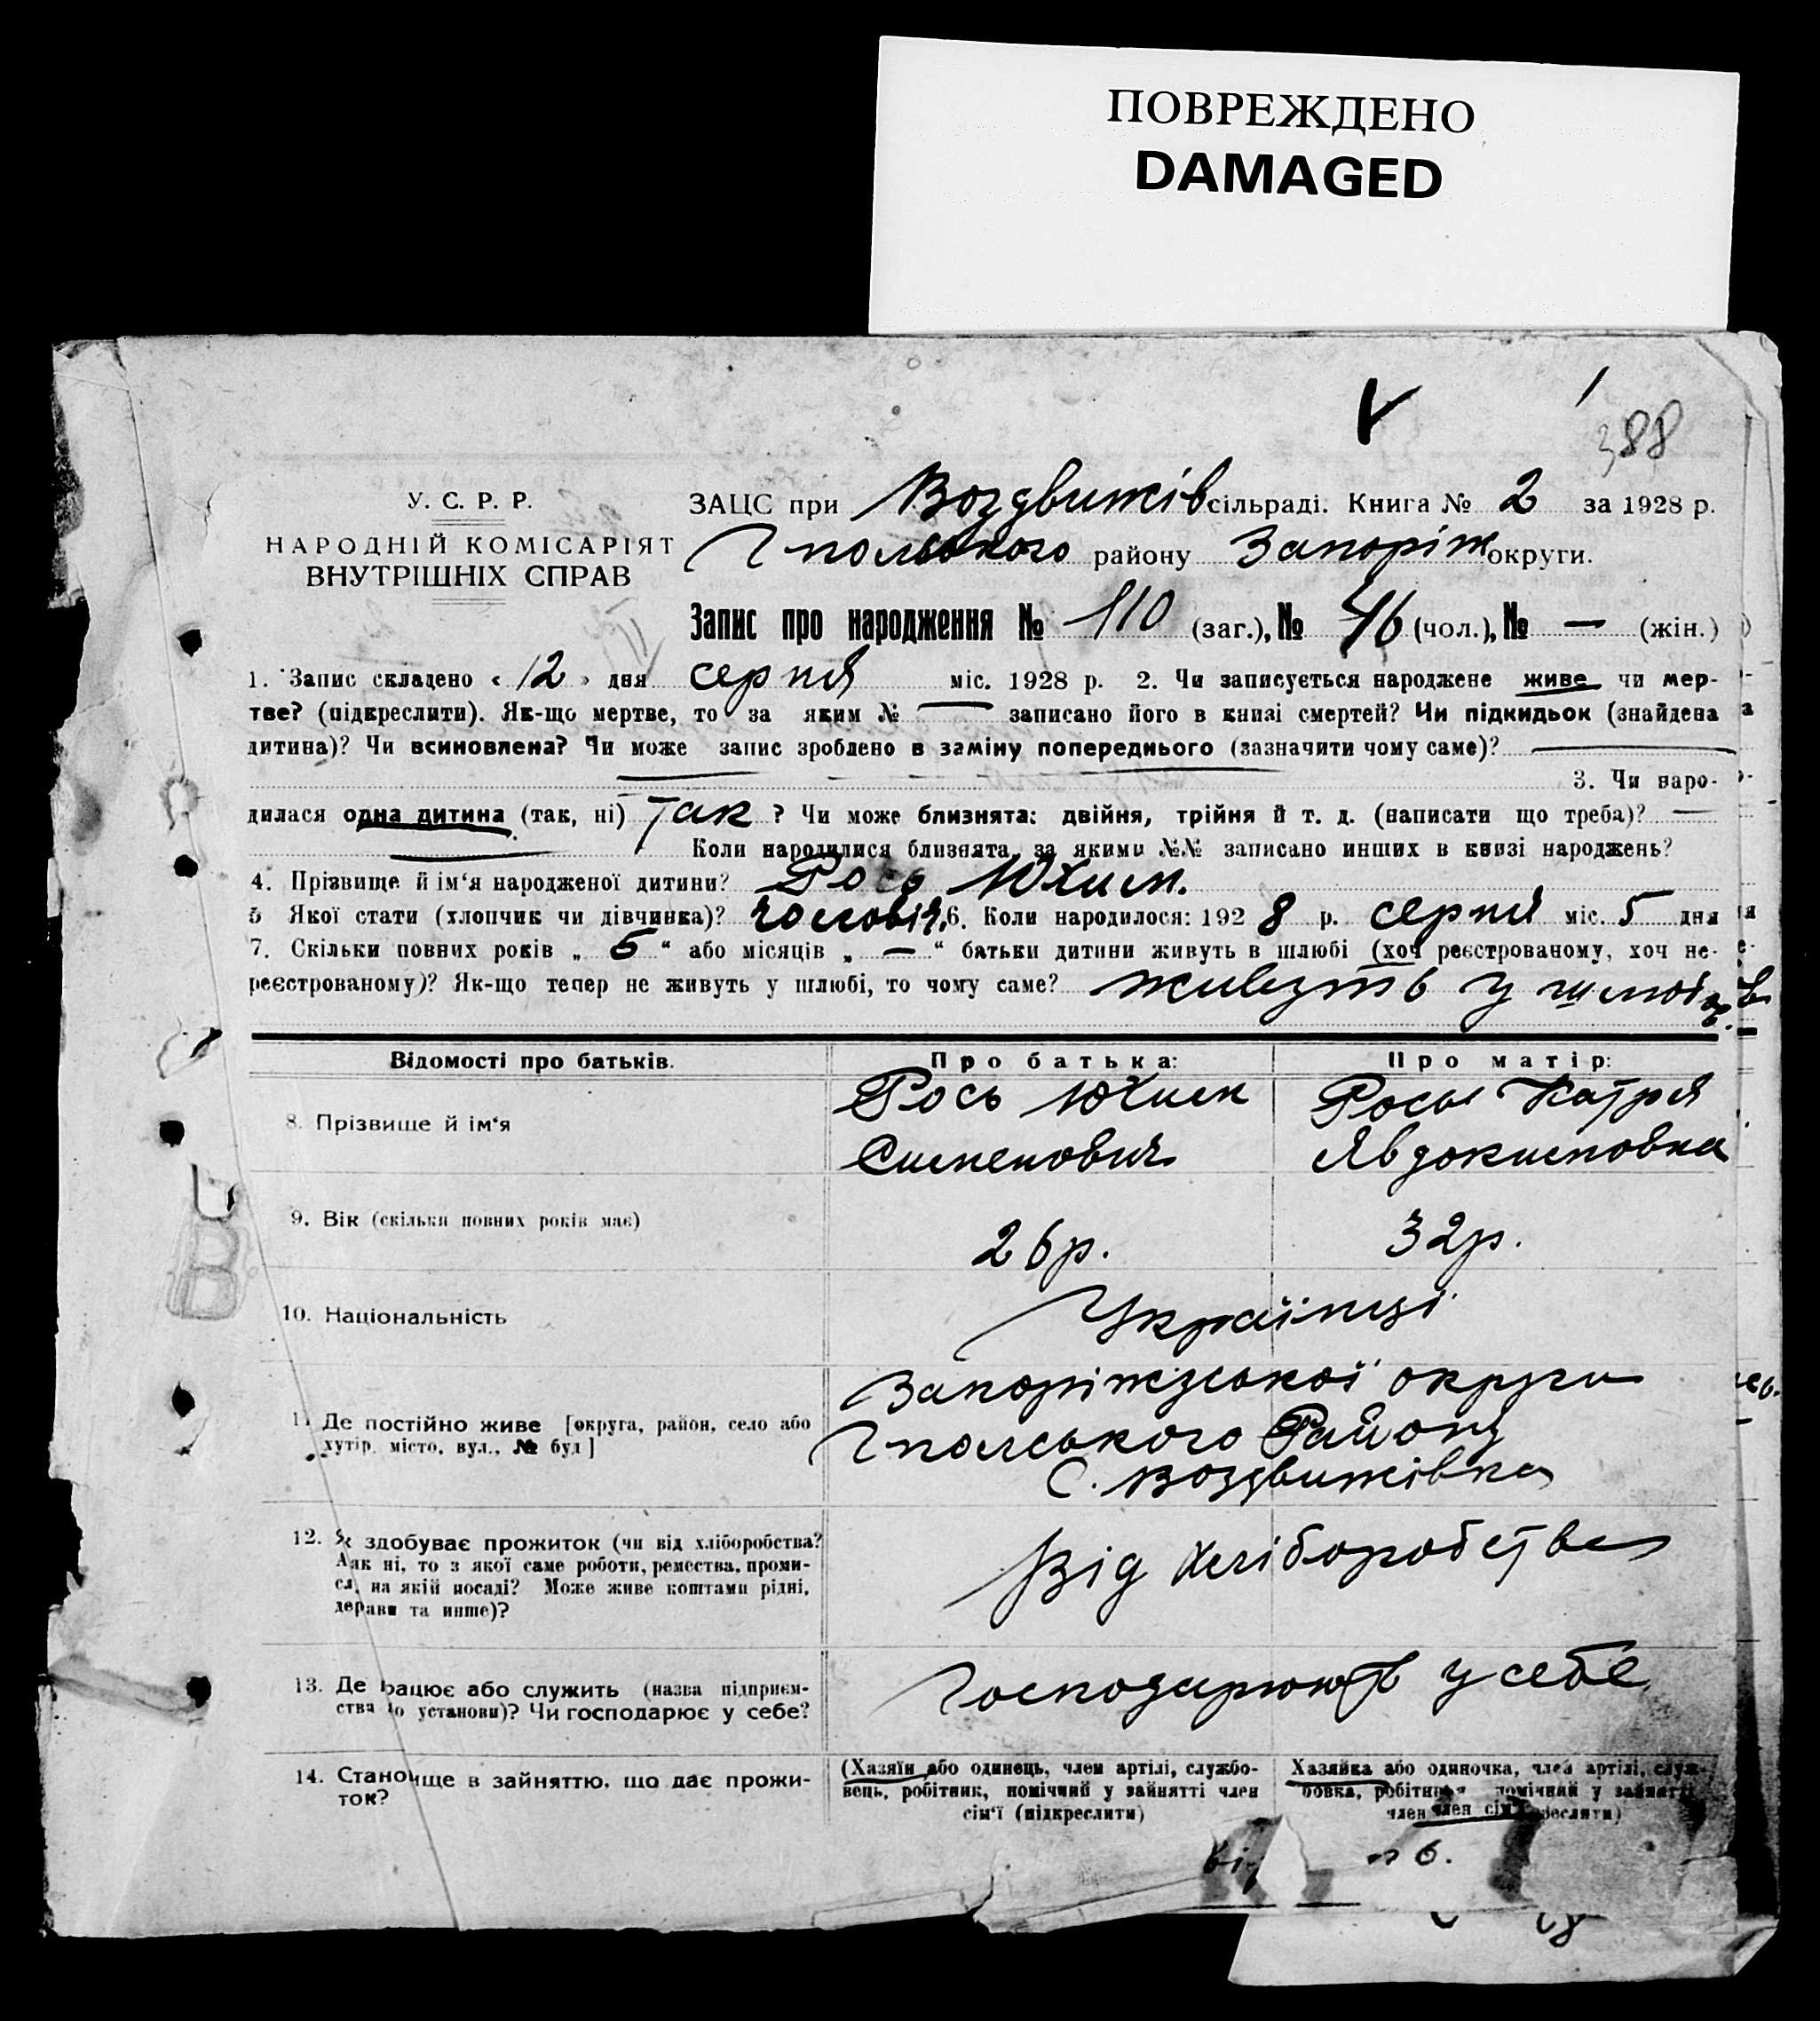 ПОВРЕЖДЕНО
DAMAGED
388
У. С. Р. Р.
НАРОДНІЙ КОМІСАРІЯТ
ВНУТРІШНІХ СПРАВ
ЗАЦС при Воздвижів сільраді. Книга № 2 за 1928 р.
Гпольського району Запоріж округи.
Запис про народження № 110 (заг.), № 46 (чол.), № — (жін.)
1. Запис складено « 12 » дня серпня міс. 1928 р. 2. Чи записується народжене живе чи мер-
тве? (підкреслити). Як-що мертве, то за яким № — записано його в книзі смертей? Чи підкидьок (знайдена
дитина)? Чи всиновлена? Чи може запис зроблено в заміну попереднього (зазначити чому саме)? —
3. Чи наро-
дилася одна дитина (так, ні) Так ? Чи може близнята: двійня, трійня й т. д. (написати що треба)? —
Коли народилися близнята, за якими №№ записано инших в книзі народжень?
4. Прізвище й ім‘я народженої дитини? Рось Юхим.
5 Якої стати (хлопчик чи дівчинка)? чоловіч. 6. Коли народилося: 192 8 р. серпня міс. 5 дня
7. Скільки повних років „ 5 “ або місяців „ — “ батьки дитини живуть в шлюбі (хоч реєстрованому, хоч не-
реєстрованому)? Як-що тепер не живуть у шлюбі, то чому саме? живуть у шлюбі
Відомості про батьків. Про батька: Про матір:
8. Прізвище й ім‘я Рось Юхим Рось Катря
Сименович Явдокимовна
9. Вік (скільки повних років має) 26 р. 32 р.
10. Національність Українці
11 Де постійно живе [округа, район, село або
хутір, місто, вул., № буд]
Запоріжзської округи
Гпольського Району
С. Воздвижівка
12. Як здобуває прожиток (чи від хліборобства?
А як ні, то з якої саме роботи, ремества, проми-
сл, на якій посаді? Може живе коштами рідні,
держави та инше)?
Від хліборобства
13. Де працює або служить (назва підприєм-
ства до установи)? Чи господарює у себе?
Господарюють у себе
14. Становище в зайняттю, що дає прожи-
ток?
(Хазяїн або одинець, член артілі, службо-
вець, робітник, помічний у зайнятті член
сім‘ї (підкреслити)
Хазяйка або одиночка, член артілі, служ-
бовка, робітниця помічний у зайнятті
член